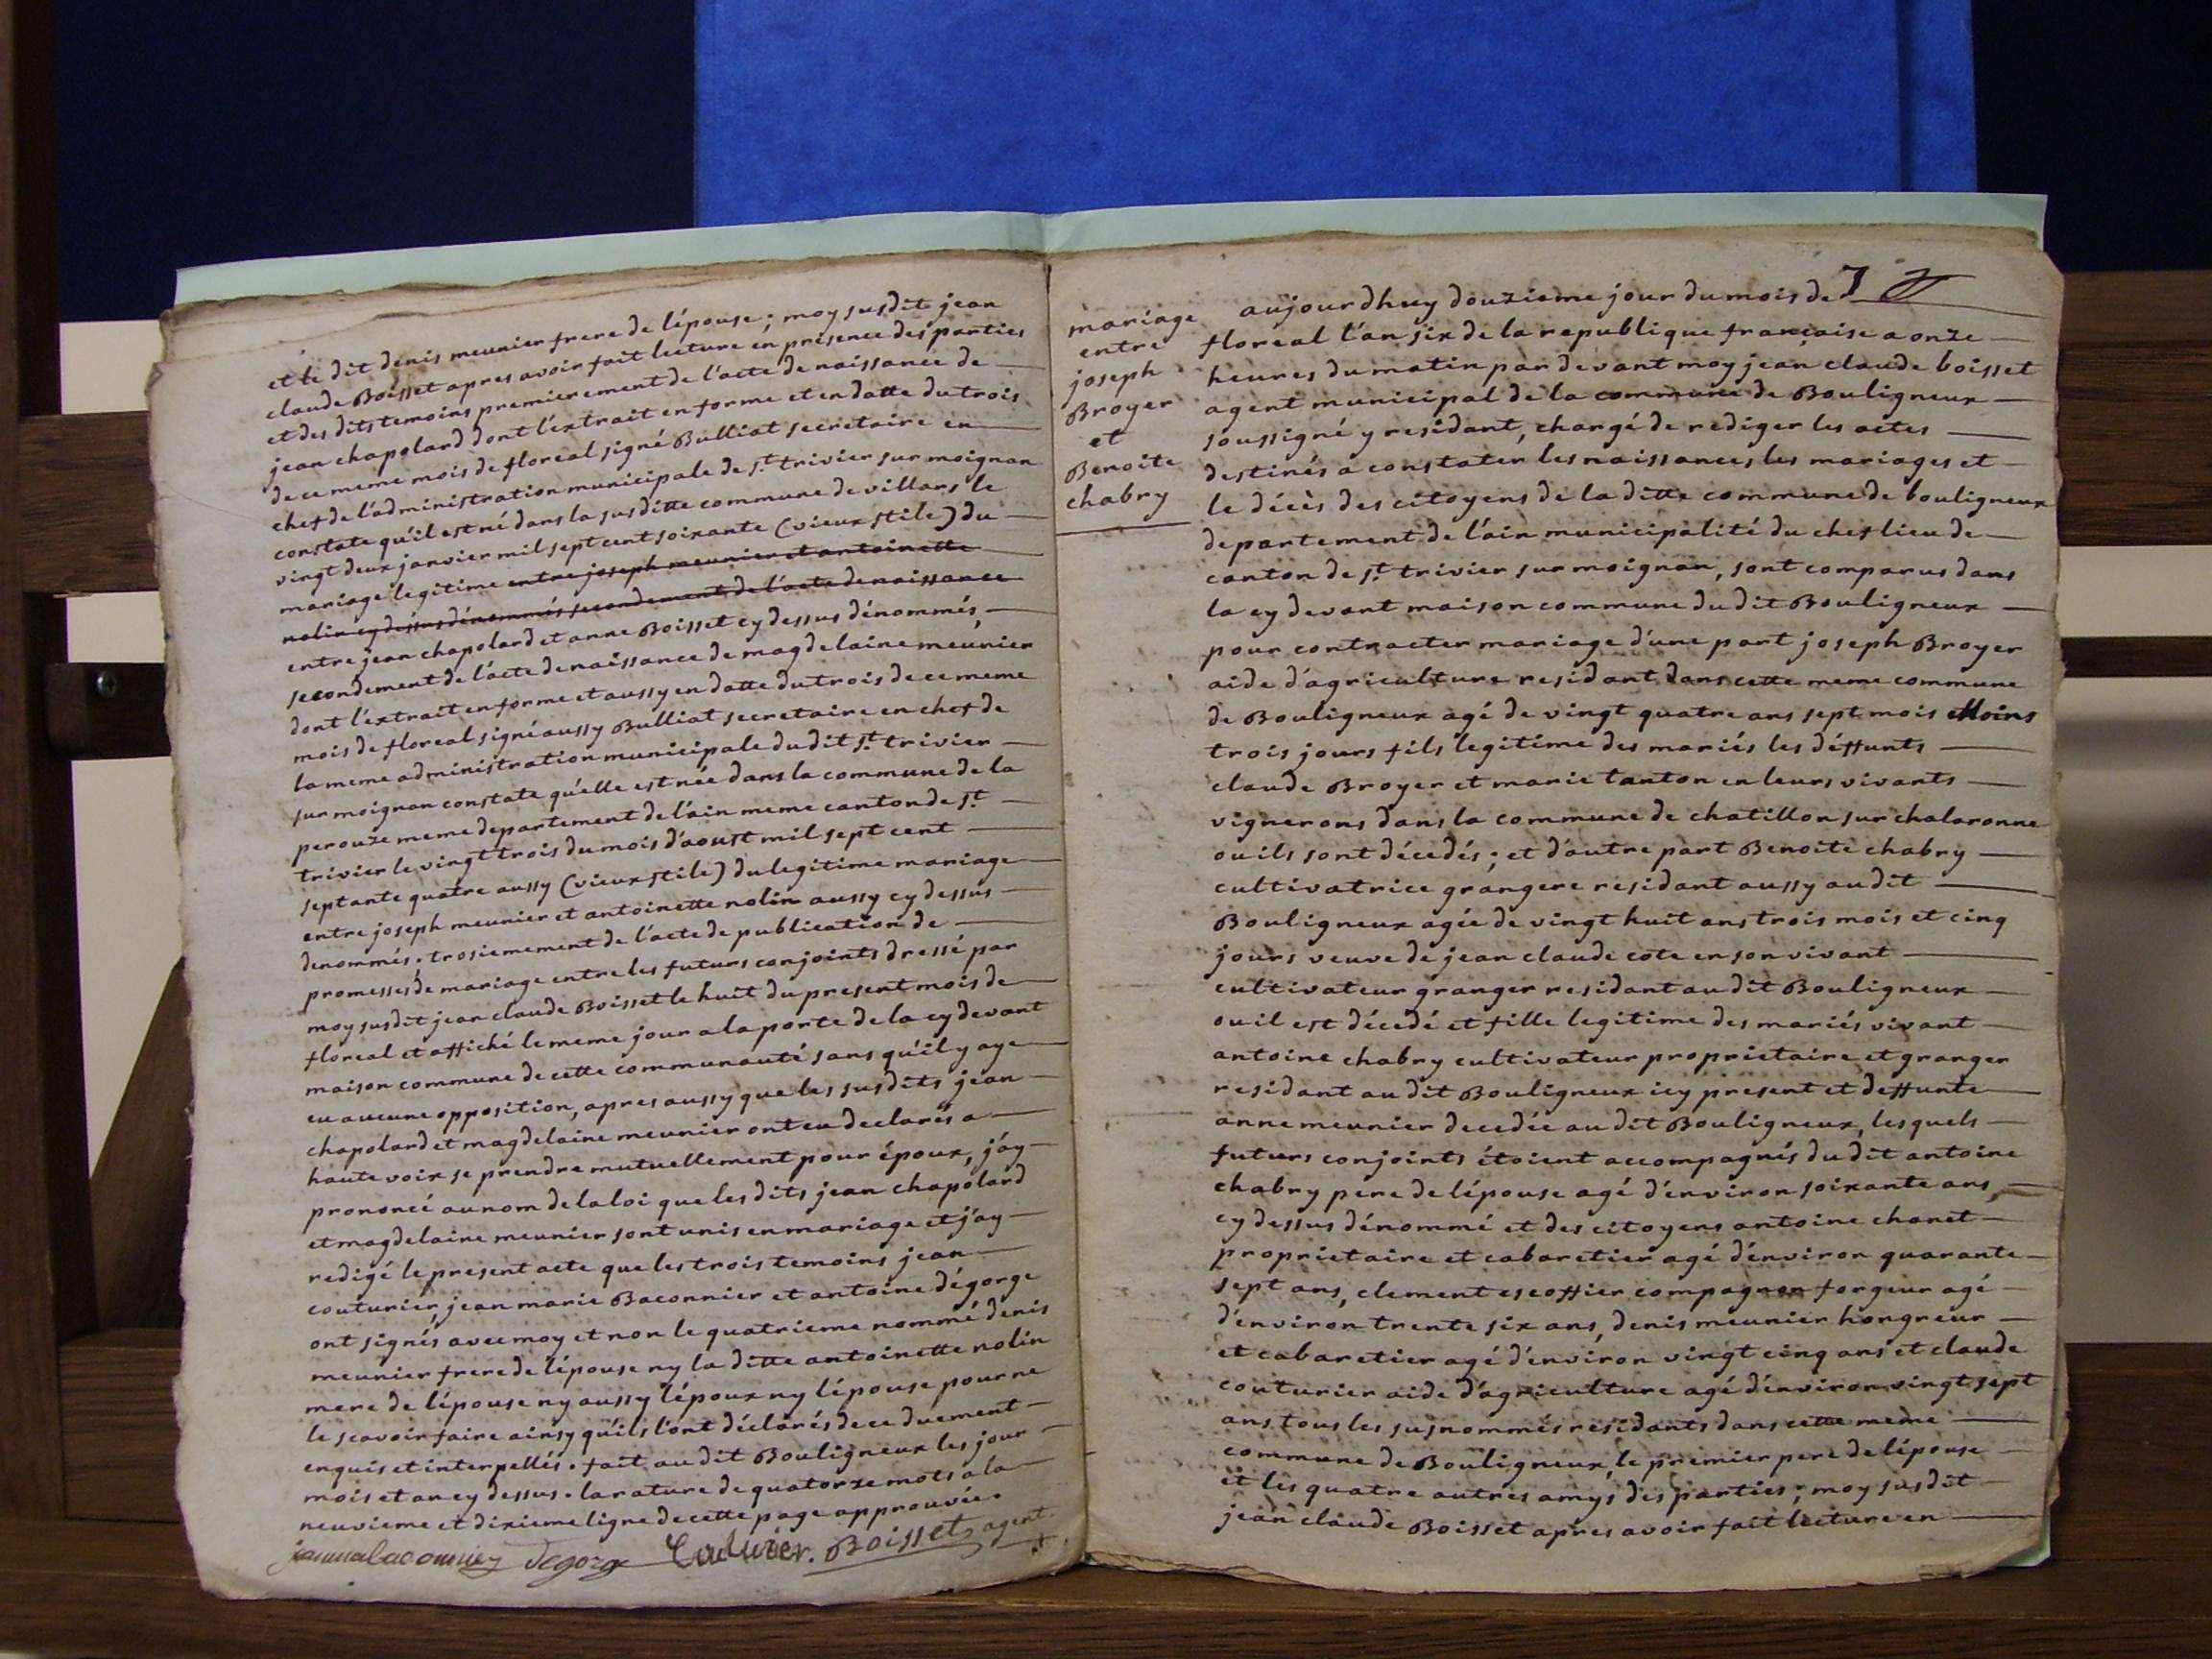 et le dit denis meunier frere de lépouse ; moy susdit jean
claude Boisset apres avoir fait lecture en présence des parties
et des dits temoins premierement de l'acte de naissance de
jean chapolard dont l'extrait en forme et en datte du trois
de ce meme mois de floreal signé Bulliat secretaire en
chef de l'administration municipale de st trivier sur moignan
constate qu'il est né dans la susditte commune de villars le
vingt deux janvier mil sept cent soixante (vieux stile) du
mariage legitime entre joseph meunier et antoinette
nolin cy dessus dénommés secondement de l'acte de naissance
entre jean chapolard et anne Boisset cy dessus dénommés,
secondement de l'acte de naissance de magdelaine meunier
dont l'extrait en forme et aussy en datte du trois de ce meme
mois de floreal signé aussy Bulliat secretaire en chef de
la meme administration municipale du dit st trivier
sur moignan constate qu'elle est née dans la commune de la
perouze meme departement de l'ain meme canton de st
trivier le vingt trois du mois d'aoust mil sept cent
septante quatre aussy (vieux stile) du legitime mariage
entre joseph meunier et antoinette nolin aussy cy dessus
denommés ; trosiemement de l'acte de publication de
promesses de mariage entre les futurs conjoints dressé par
moy susdit jean claude Boisset le huit du present mois de
floreal et affiché le meme jour a la porte de la cy devant
maison commune de cette communauté sans qu'il y aye
eu aucune opposition, apres aussy que les susdits jean
chapolard et magdelaine meunier ont eu declarés a
haute voix se prendre mutuellement pour époux, j'ay
prononcé au nom de la loi que les dits jean chapolard
et magdelaine meunier sont unis en mariage et j'ay
redigé le present acte que les trois temoins jean
couturier, jean marie Baconnier et antoine dégorge
ont signés avec moy et non le quatrieme nommé denis
meunier frere de lépouse ny la ditte antoinette nolin
mere de lépouse ny aussy lépoux ny lépouse pour ne
le scavoir faire ainsy qu'ils l'ont déclarés de ce duement
enquis et interpellés. fait au dit Bouligneux les jour
mois et an cy dessus. la rature de quatorze mots a la
neuvieme et dixieme ligne de cette page approuvée.
degorge Couturier. Boisset agent
mariage
entre
joseph
Broyer
et
Benoite
chabry
7
aujourdhuy douzieme jour du mois de
floreal l'an six de la republique française a onze
heures du matin par devant moy jean claude boisset
agent municipal de la commune de Bouligneux
soussigné y residant, chargé de rediger les actes
destinés a constater les naissances les mariages et
le décès des citoyens de la ditte commune de bouligneux
departement de l'ain municipalité du chef lieu de
canton de st trivier sur moignan, sont comparus dans
la cy devant maison commune du dit Bouligneux
pour contracter mariage d'une part joseph Broyer
aide d'agriculture residant dans cette meme commune
de Bouligneux agé de vingt quatre ans sept mois Moins
trois jours fils legitime des mariés les déffunts
claude Broyer et marie tanton en leurs vivants
vignerons dans la commune de chatillon sur chalaronne
ou ils sont décedés ; et d'autre part Benoite chabry
cultivatrice grangere residant aussy au dit
Bouligneux agée de vingt huit ans trois mois et cinq
jours veuve de jean claude cote en son vivant
cultivateur granger residant au dit Bouligneux
ou il est décedé et fille legitime des mariés vivant
antoine chabry cultivateur proprietaire et granger
residant au dit Bouligneux icy present et deffunte
anne meunier decedée au dit Bouligneux, lesquels
futurs conjoints étoient accompagnés du dit antoine
chabry pere de lépouse agé d'environ soixante ans
cy dessus dénommé et des citoyens antoine chanet
proprietaire et cabaretier agé d'environ quarante
sept ans, clement escoffier compagnon forgeur agé
d'environ trente six ans, denis meunier hongreur
et cabaretier agé d'environ vingt cinq ans et claude
couturier aide d'agriculture agé d'environ vingt sept
ans tous les susnommés residants dans cette meme
commune de Bouligneux, le premier pere de lépouse
et les quatre autres amys des parties ; moy susdit
jean claude Boisset apres avoir fait lecture en